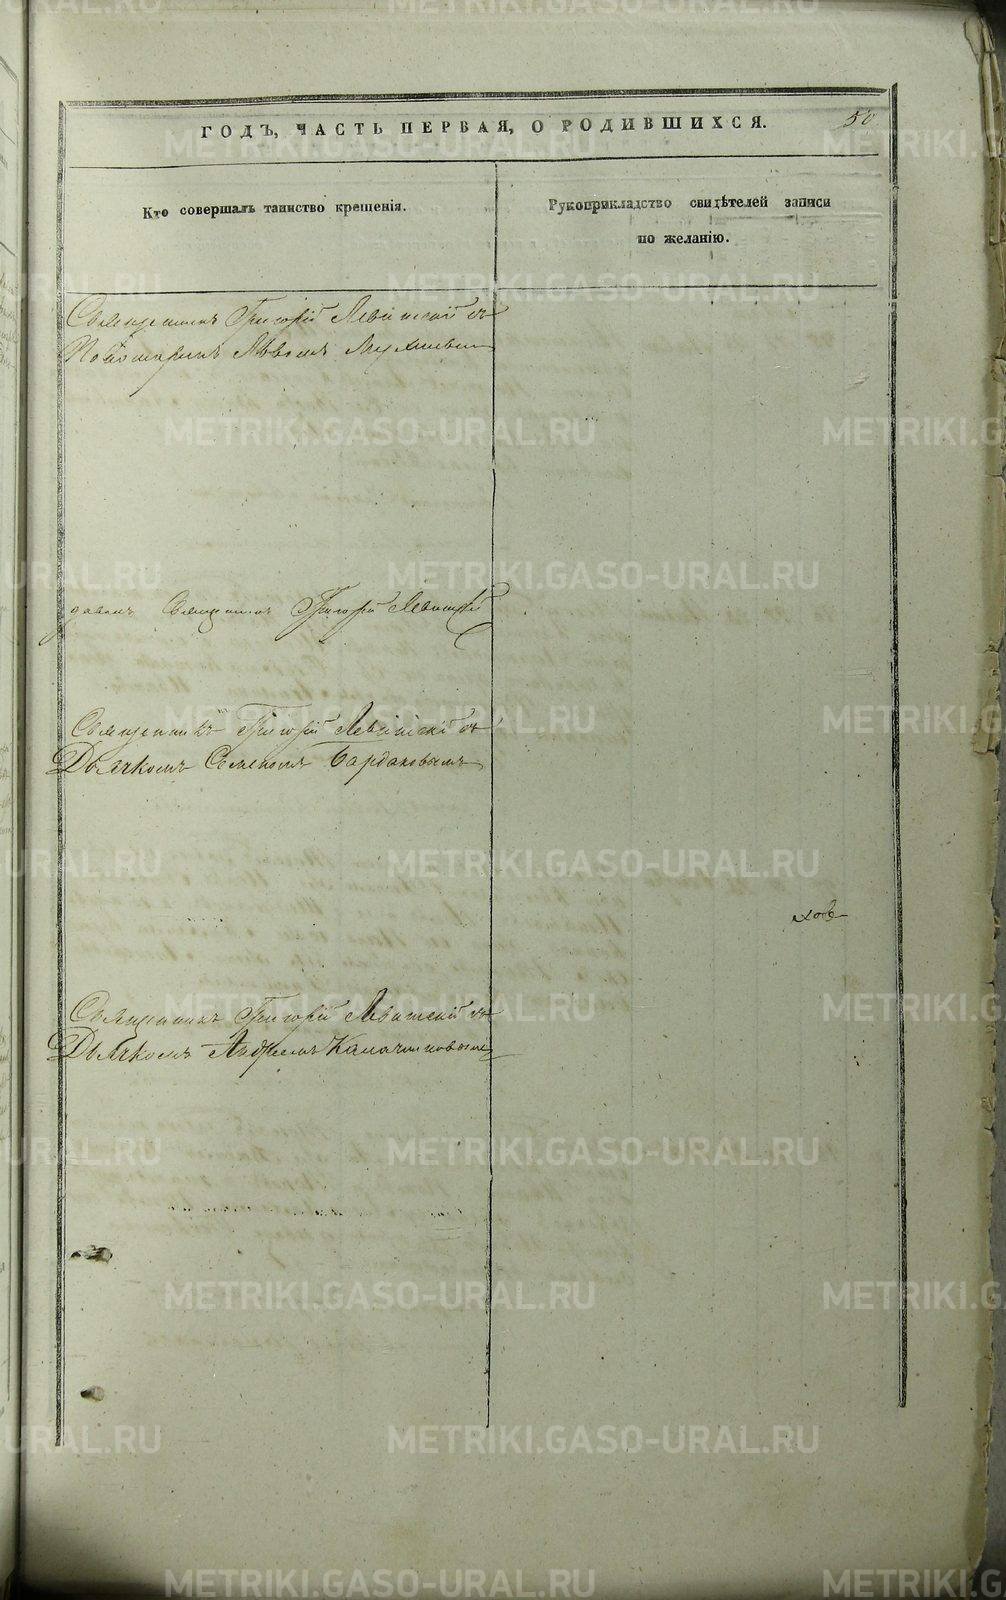 ГОДЪ, ЧАСТЬ ПЕРВАЯ, О РОДИВШИХСЯ.
50
Кто совершалъ таинство крещенія.
Рукоприкладство свидѣтелей записи
по желанію.
Священникъ Григорій Левитскій съ
Пономаремъ Львомъ
Священникъ Григорій Левитскій
Священникъ Григорій Левитскій съ
Дьячкомъ Семеномъ Бардаковымъ
Священникъ Григорій Левитскій съ
Дьячкомъ Андреемъ
METRIKI.GASO-URAL.RU